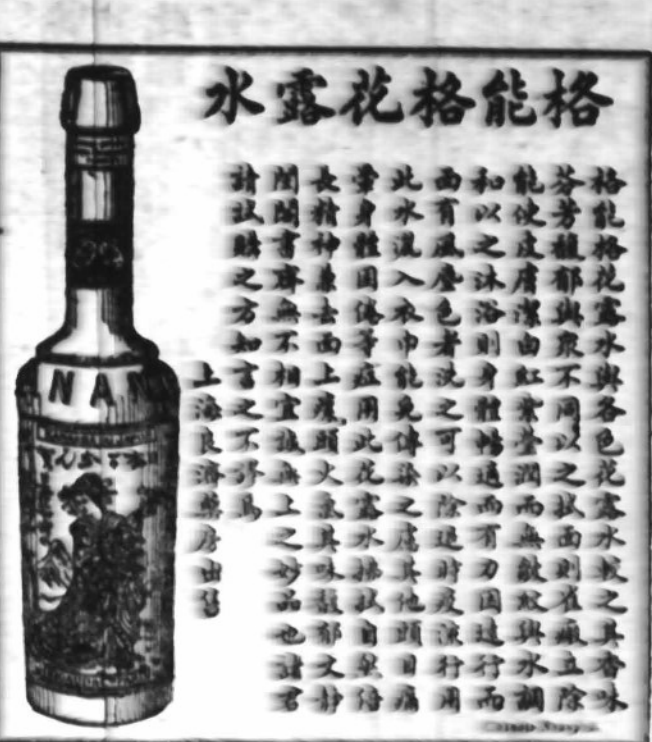 格能格花露水
格能格花露水與各色花露水較之其香味
芬芳馥郁與衆不同以之拭面則雀瘢立除
能使皮膚潔由紅潤而無皺紋與水調
和以之沐浴則身體暢適而有力因遠行而
面有風塵色者洗之可以除退時疫流行用
此水洒入衣巾能免傳染之虞其他頭目痛
暈身體困倦等症用此花露水擦拭自然倍
長精神兼去面上頭火氣其味馥郁文靜
閨閣書齋無不相宜誠無上之妙品也諸君
請試購之方知言之不謬焉
上海良濟藥房由售
NAN